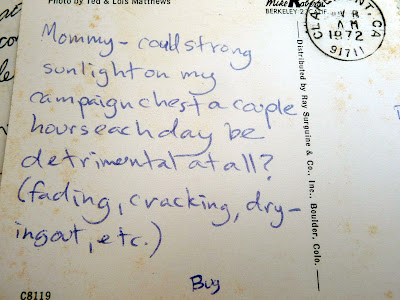 Photo by Ted & Lois Matthews
Mike Roberts
BERKELEY 2, CALIF.
CLAREMONT, CA
AM
1972
91711
Mommy - could strong
sunlight on my
campaign chest a couple
hours each day be
detrimental at all?
(fading, cracking, dry-
ing out, etc.)
Bug
Distributed by Ray Surguine & Co., Inc., Boulder, Colo.
C8119